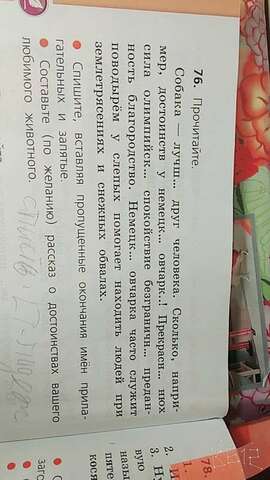 76. Прочитайте.
Собака — лучш... друг человека. Сколько, напри-
мер, достоинств у немецк... овчарк...! Прекрасн... нюх
сила олимпийск... спокойствие безграничн... предан-
ность благородство. Немецк... овчарка часто служит
поводырём у слепых помогает находить людей при
землетрясениях и снежных обвалах.
● Спишите, вставляя пропущенные окончания имён прила-
гательных и запятые.
● Составьте (по желанию) рассказ о достоинствах вашего
любимого животного.
78.
1.
2. И
3. Н
вую
назы
пяте
кося